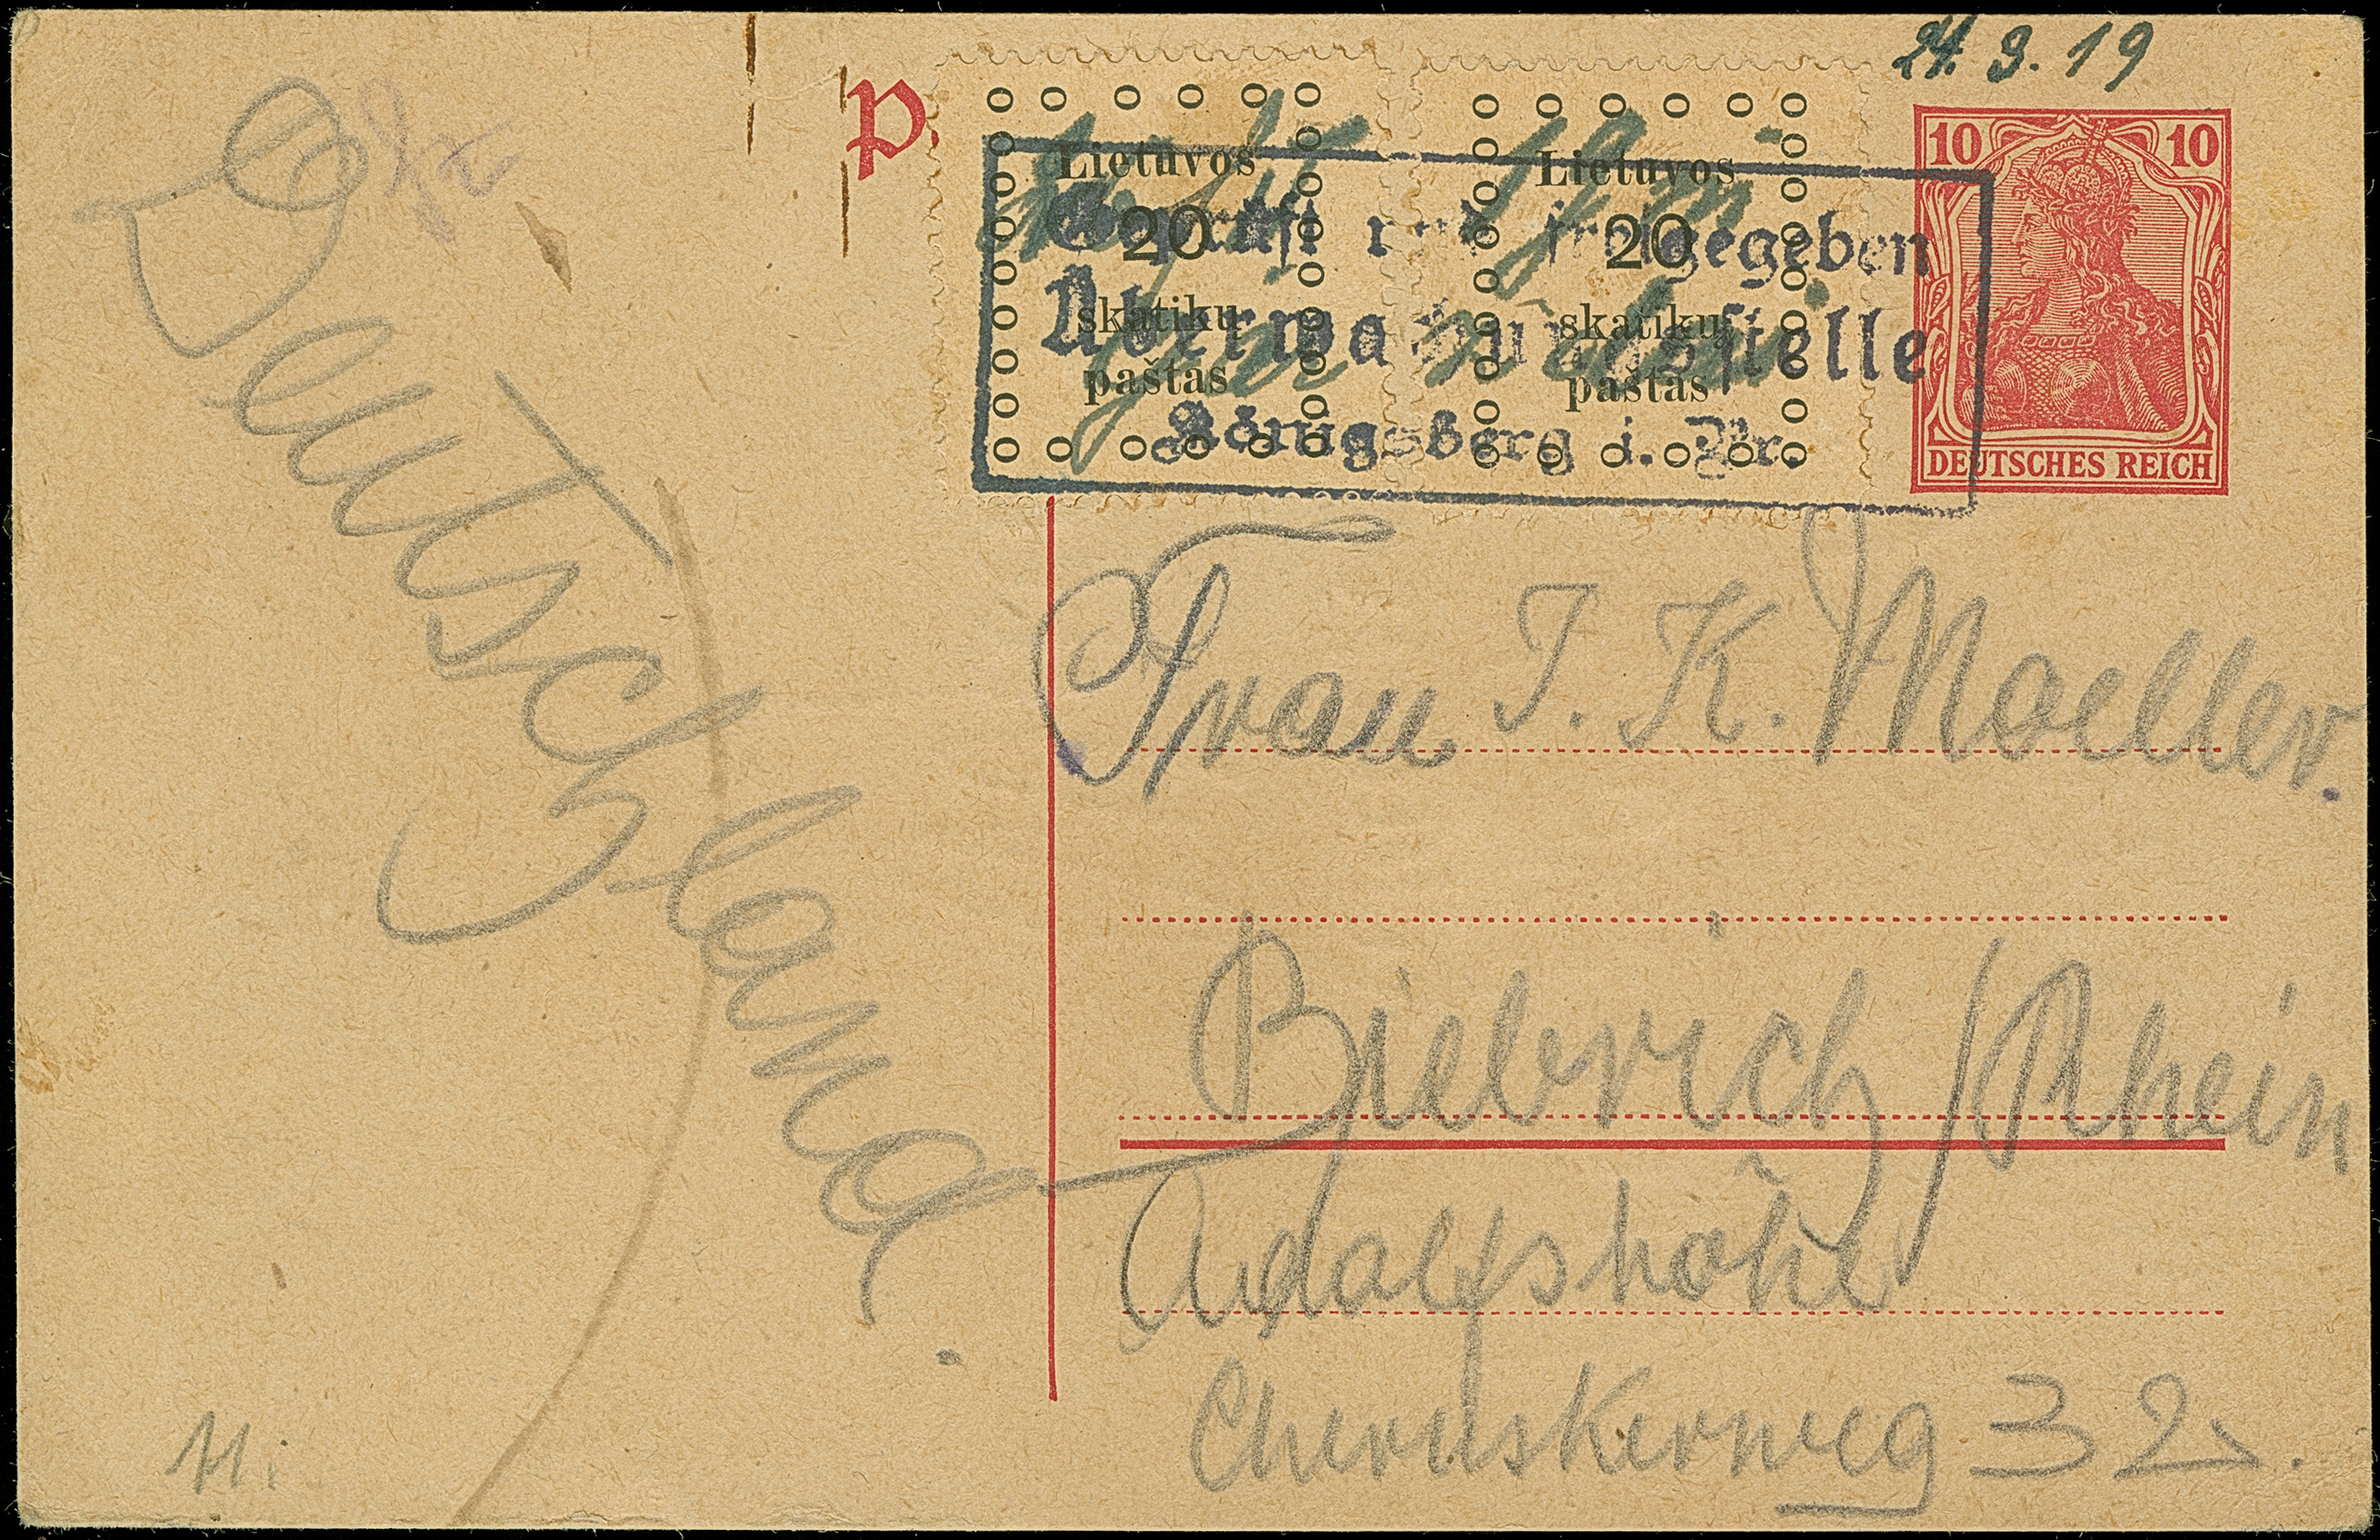 24. 3. 19
P.
10 10
DEUTSCHES REICH
Lietuvos
20
skatikų
paštas
Lietuvos
20
skatikų
paštas
Geprüft und freigegeben
Überwachungsstelle
Königsberg i. Pr.
Deutschland
Frau J. K. Moeller.
Biebrich/Rhein
Adolfshöhe
Cheruskerweg 32.